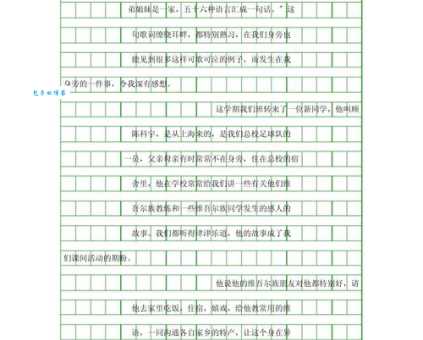 弟姐妹是一家，五十六种语言汇成一句话。”这
句歌词缭绕耳畔，都特别熟习，在我们身旁也
能见到很多这样可歌可泣的例子。而发生在我
身旁的一件事，令我深有感想。
这学期我们班转来了一位新同学，他叫顾
陈科宇，是从上海来的，是我们总校足球队的
一员，父亲母亲有时常常不在身旁，住在总校的宿
舍里。他在学校常常给我们讲一些有关他们维
吾尔族教练和一些维吾尔族同学发生的感人的
故事。我们都听得津津乐道，他的故事成了我
们课间活动的期盼。
他说他的维吾尔族朋友对他都特别好，请
他去家里吃饭，住宿，嬉戏，给他教常用的维
语，一同沟通各自家乡的特产，让这个身在异